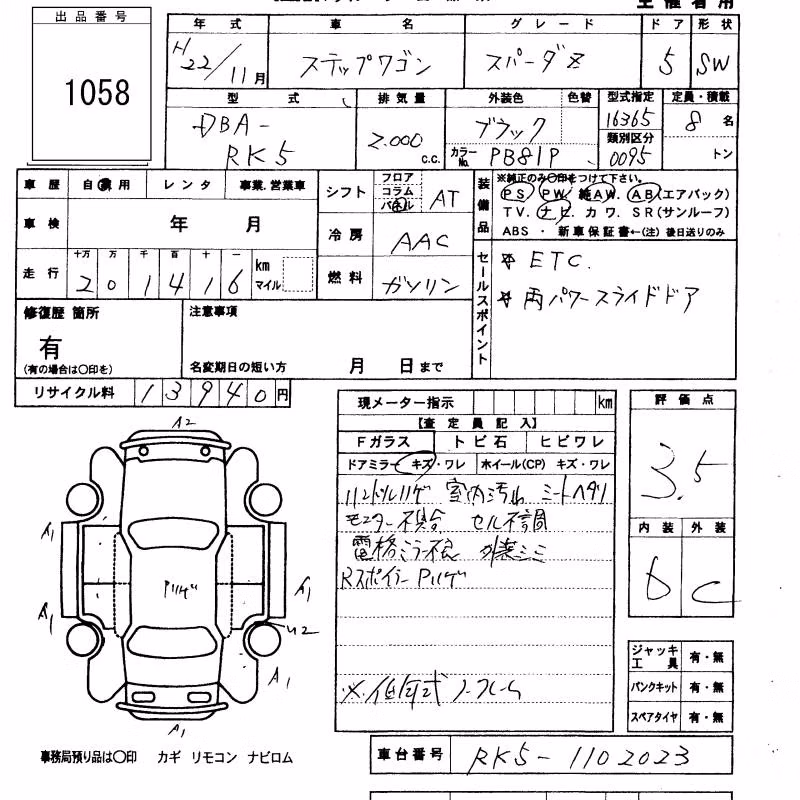 出品番号
1058
年式
車名
グレード
ドア
形状
H22/11月
ステップワゴン
スパーダZ
5
SW
型式
排気量
外装色
色替
型式指定
定員・積載
DBA-
RK5
2.000
c.c.
ブラック
カラーNo.
PB81P
16365
類別区分
0095
8名
トン
車歴
自家用
レンタ
事業.営業車
シフト
フロア
コラム
パネル
AT
装備品
※純正のみ〇印をつけて下さい。
PS PW. 純AW. AB(エアバック)
TV. ナビ. カワ. SR(サンルーフ)
ABS ・ 新車保証書←(注) 後日送りのみ
車検
年 月
冷房
AAC
走行
十万 万 千 百 十 一
201416
km
マイル
燃料
ガソリン
セールスポイント
ETC.
両パワースライドドア
修復歴 箇所
有
(有の場合は〇印を)
注意事項
名変期日の短い方
月 日まで
リサイクル料
13940円
現メーター指示
km
【査定員記入】
Fガラス
トビ石
ヒビワレ
ドアミラー キズ・ワレ
ホイール(CP) キズ・ワレ
ハンドルハゲ 室内汚れ シートヘタリ
モニター不具合 セル不調
電格ミラー不良 外装シミ
Rスポイラー Pハゲ
※低年式 ノークレーム
評価点
3.5
内装
外装
D
C
A2
A1
A1
Pハゲ
A1
A1
U2
A1
A1
ジャッキ工具
有・無
パンクキット
有・無
スペアタイヤ
有・無
事務局預り品は〇印 カギ リモコン ナビロム
車台番号
RK5-1102023